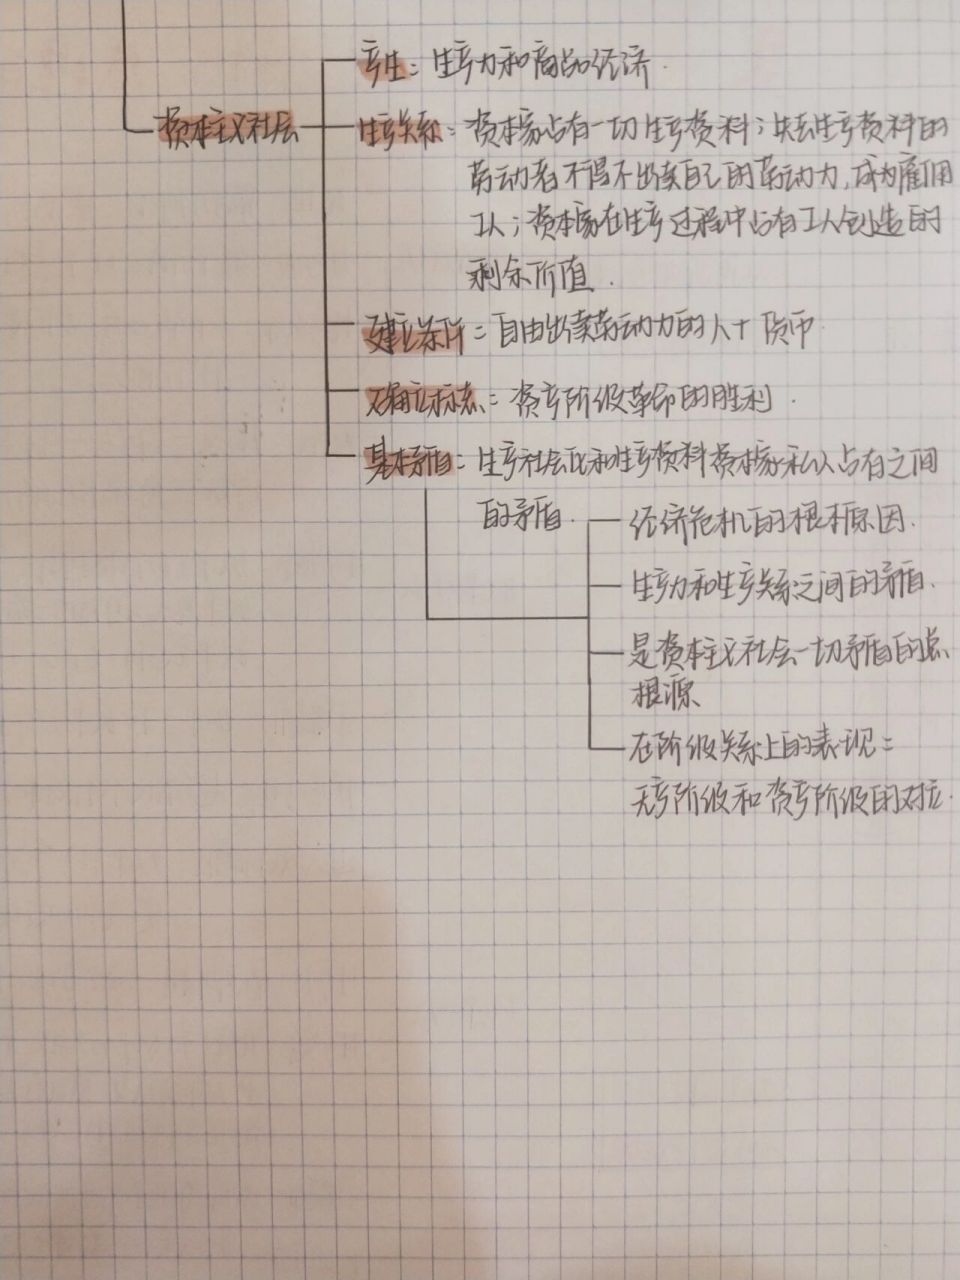 产生：生产力和商品经济.
资本主义社会
生产关系：资本家占有一切生产资料；失去生产资料的
劳动者不得不出卖自己的劳动力,成为雇佣
工人；资本家在生产过程中占有工人创造的
剩余价值.
建立条件：自由出卖劳动力的人+货币
确立标志：资产阶级革命的胜利.
基本矛盾：生产社会化和生产资料资本家私人占有之间
的矛盾.
经济危机的根本原因.
生产力和生产关系之间的矛盾.
是资本主义社会一切矛盾的总
根源
在阶级关系上的表现：
无产阶级和资产阶级的对立.